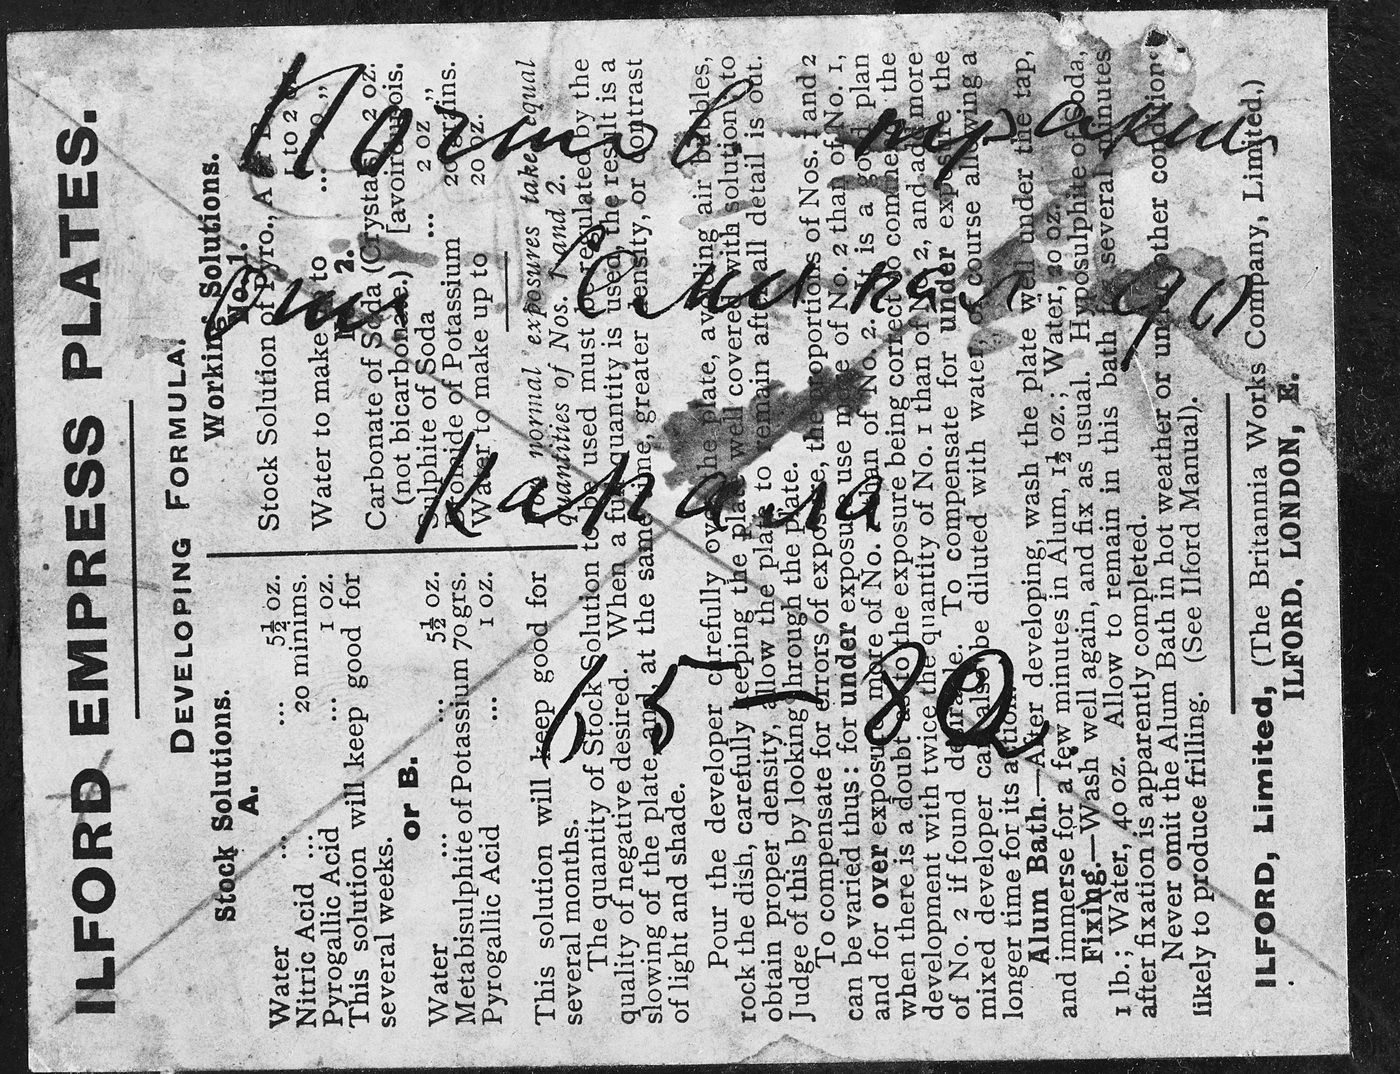 ILFORD EMPRESS PLATES.
DEVELOPING FORMULA.
Stock Solutions.
A.
Water ... ... 5½ oz.
Nitric Acid ... 20 minims.
Pyrogallic Acid ... 1 oz.
This solution will keep good for
several weeks.
or B.
Water ... ... 5½ oz.
Metabisulphite of Potassium 70 grs.
Pyrogallic Acid ... 1 oz.
This solution will keep good for
several months.
Working Solutions.
No. 1.
Stock Solution of Pyro., A
1 to 2
Water to make up to ... 20 „
2.
Carbonate of Soda (Crystals) 2 oz.
(not bicarbonate.) [avoirdupois.
Sulphite of Soda ... 2 oz „
Bromide of Potassium 20 grains.
Water to make up to 20 oz.
For normal exposures take equal
quantities of Nos. 1 and 2.
The quantity of Stock Solution to be used must be regulated by the
quality of negative desired. When a full quantity is used, the result is a
slowing of the plate, and, at the same time, greater density, or contrast
of light and shade.
Pour the developer carefully over the plate, avoiding air bubbles,
rock the dish, carefully keeping the plate well covered with solution to
obtain proper density, allow the plate to remain after all detail is out.
Judge of this by looking through the plate.
To compensate for errors of exposure, the proportions of Nos. 1 and 2
can be varied thus: for under exposure use more of No. 2 than of No. 1,
and for over exposure more of No. 1 than of No. 2. It is a good plan
when there is a doubt as to the exposure being correct to commence the
development with twice the quantity of No. 1 than of No. 2, and add more
of No. 2 if found desirable. To compensate for under exposure the
mixed developer can also be diluted with water, of course allowing a
longer time for its action.
Alum Bath.—After developing, wash the plate well under the tap,
and immerse for a few minutes in Alum, 1½ oz.; Water, 20 oz.
Fixing.—Wash well again, and fix as usual. Hyposulphite of Soda,
1 lb.; Water, 40 oz. Allow to remain in this bath for several minutes
after fixation is apparently completed.
Never omit the Alum Bath in hot weather or under other conditions
likely to produce frilling. (See Ilford Manual).
ILFORD, Limited, (The Britannia Works Company, Limited.)
ILFORD, LONDON, E.
15-80